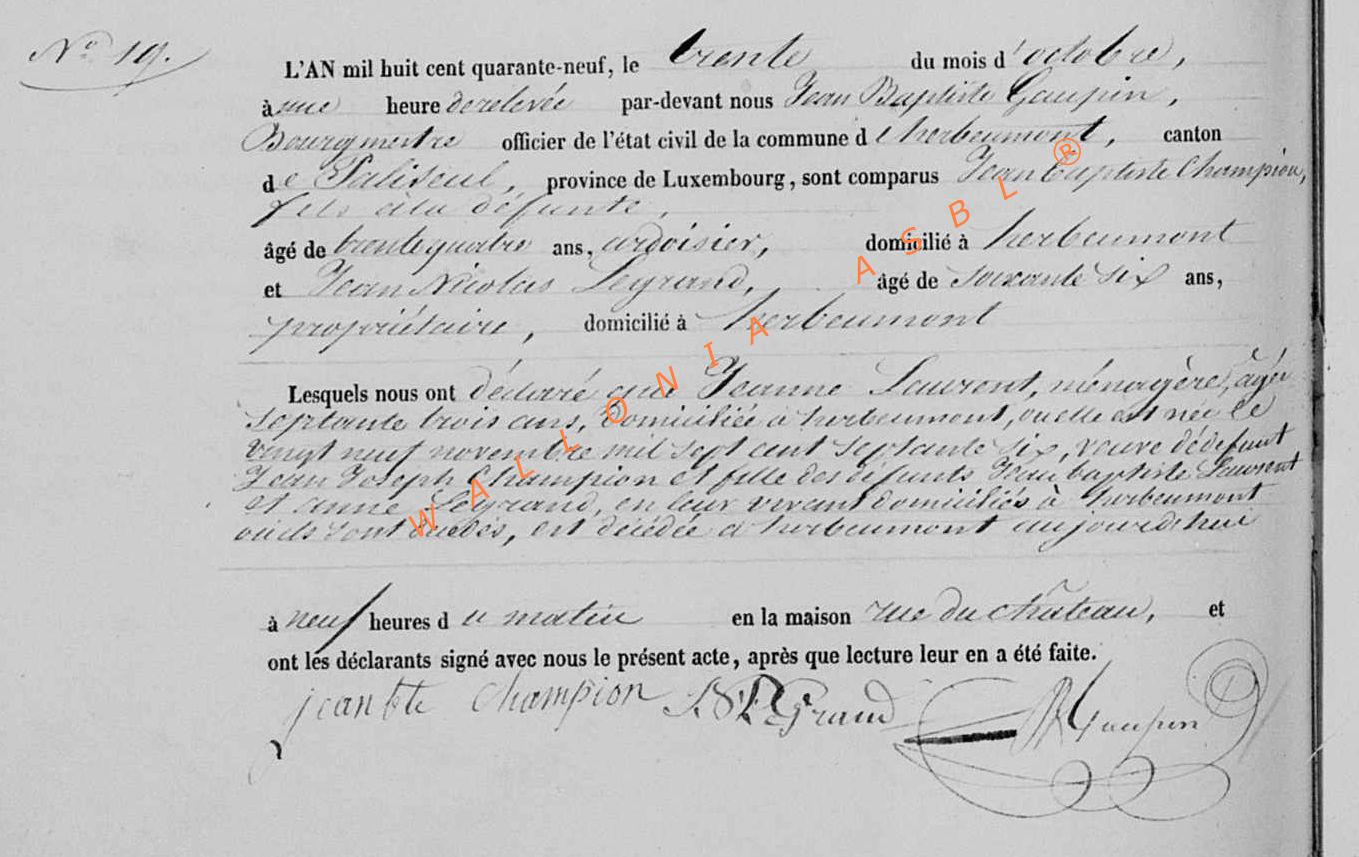 No 19.
L'AN mil huit cent quarante-neuf, le trente du mois d'octobre,
à une heure de relevée par-devant nous Jean Baptiste Gaupin,
Bourgmestre officier de l'état civil de la commune de herbeumont, canton
de Paliseul, province de Luxembourg, sont comparus Jean baptiste Champion,
fils à la défunte,
âgé de trente quatre ans, ardoisier, domicilié à herbeumont
et Jean Nicolas Legrand, âgé de soixante six ans,
propriétaire, domicilié à herbeumont
Lesquels nous ont déclaré que Jeanne Laurent, ménagère, âgée
septante trois ans, domiciliée à herbeumont, ou elle est née le
vingt neuf novembre mil sept cent septante six, veuve de défunt
Jean Joseph Champion et fille des défunts Jean baptiste Laurent
et anne Legrand, en leur vivant domiciliés à herbeumont
ou ils sont décédés, est décédée a herbeumont aujourd'hui
à neuf heures du matin en la maison rue du château, et
ont les déclarants signé avec nous le présent acte, après que lecture leur en a été faite.
jean bte Champion JN LeGrand Gaupin
WALLONIA ASBL ®